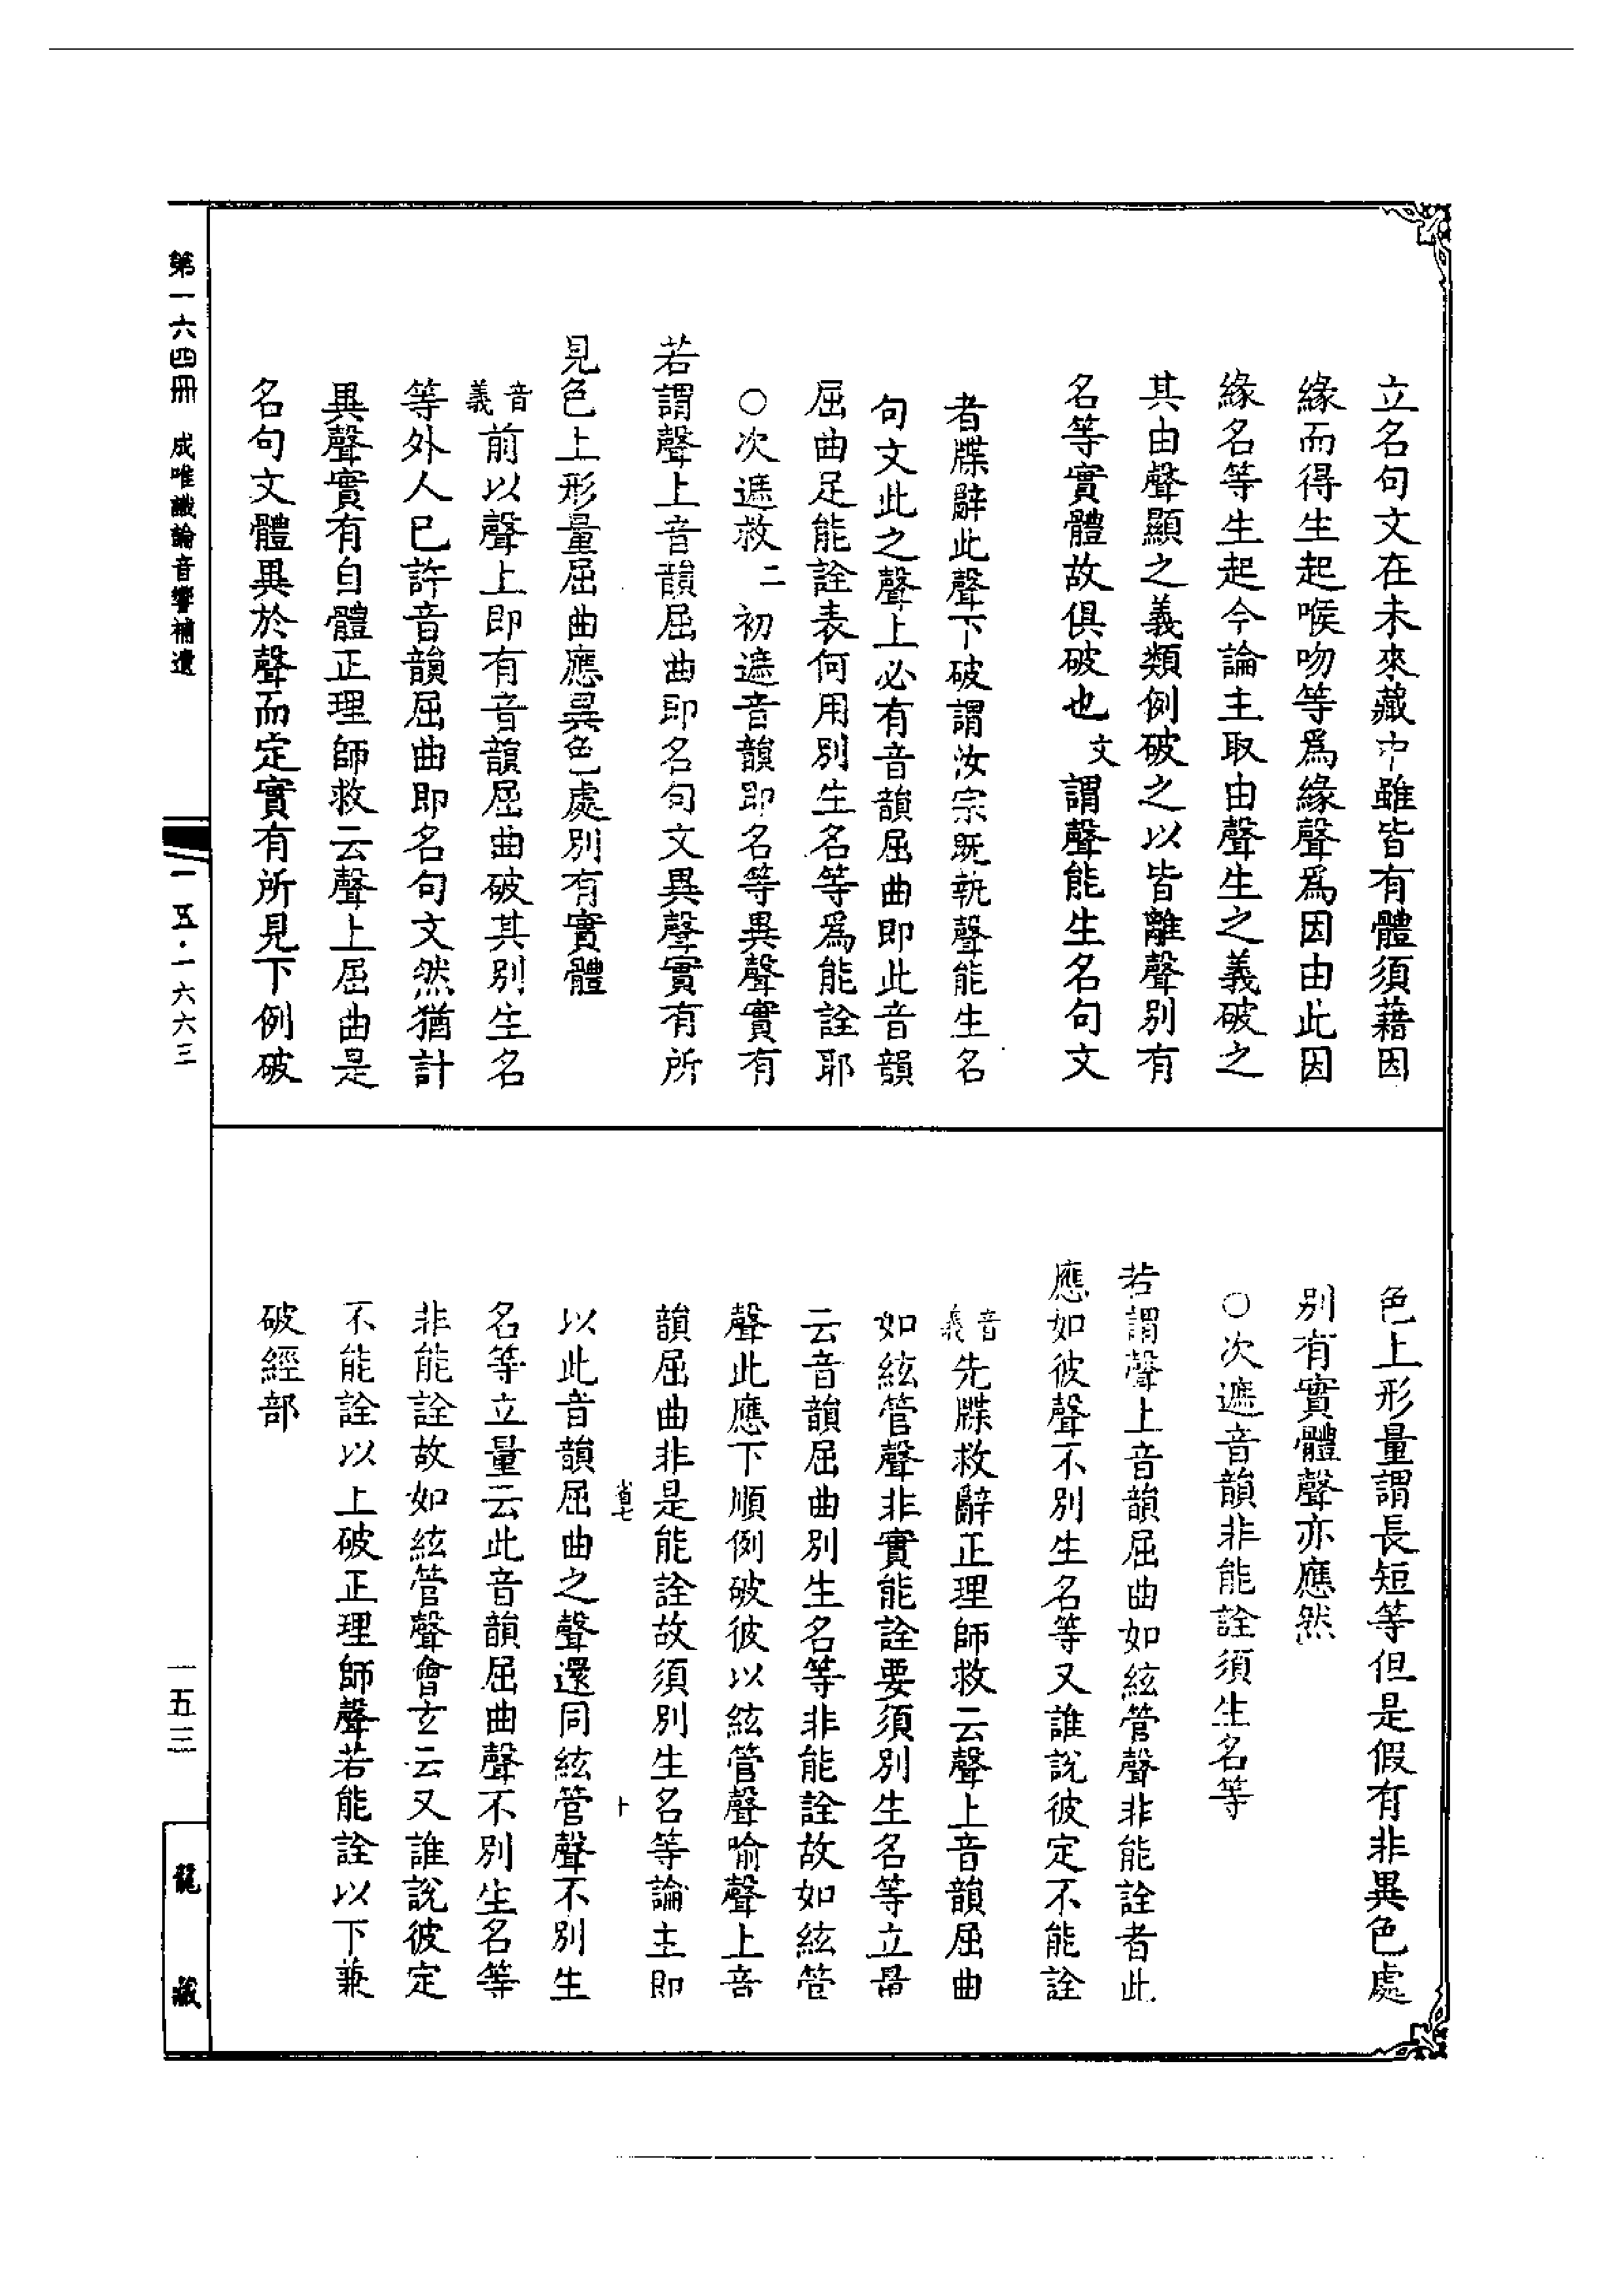 立名句文在未來藏中雖皆有體須藉因
緣而得生起喉吻等爲緣聲爲因由此因
緣名等生起今論主取由聲生之義破之
其由聲顯之義類例破之以皆離聲別有
名等實體故俱破也文謂聲能生名句文
者牒辭此聲下破謂汝宗既執聲能生名
句文此之聲上必有音韻屈曲即此音韻
屈曲足能詮表何用別生名等爲能詮耶
○次遮救二初遮音韻即名等異聲實有
若謂聲上音韻屈曲即名句文異聲實有所
見色上形量屈曲應異色處別有實體
音義前以聲上即有音韻屈曲破其別生名
等外人已許音韻屈曲即名句文然猶計
異聲實有自體正理師救云聲上屈曲是
名句文體異於聲而定實有所見下例破
色上形量謂長短等但是假有非異色處
別有實體聲亦應然
○次遮音韻非能詮須生名等
若謂聲上音韻屈曲如絃管聲非能詮者此
應如彼聲不別生名等又誰說彼定不能詮
音義先牒救辭正理師救云聲上音韻屈曲
如絃管聲非實能詮要須別生名等立量
云音韻屈曲別生名等非能詮故如絃管
聲此應下順例破彼以絃管聲喻聲上音
韻屈曲非是能詮故須別生名等論主即
省七 十
以此音韻屈曲之聲還同絃管聲不別生
名等立量云此音韻屈曲聲不別生名等
非能詮故如絃管聲會玄云又誰說彼定
不能詮以上破正理師聲若能詮以下兼
破經部
第一六四冊 成唯識論音響補遺
一一五·一六六三
一五三
龍藏